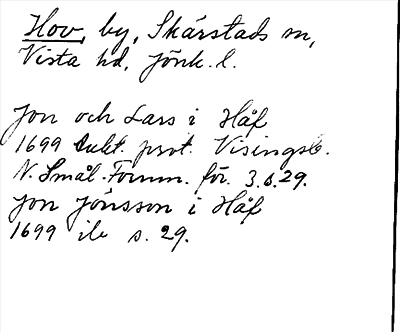 Hov, by, Skärstads sn,
Vista hd, Jönk. l.
Jon och Lars i Håf
1699 Aukt. prot. Visingsb.
N. Smål. Fornm. för. 3.s.29.
Jon Jönsson i Håf
1699 ib s. 29.